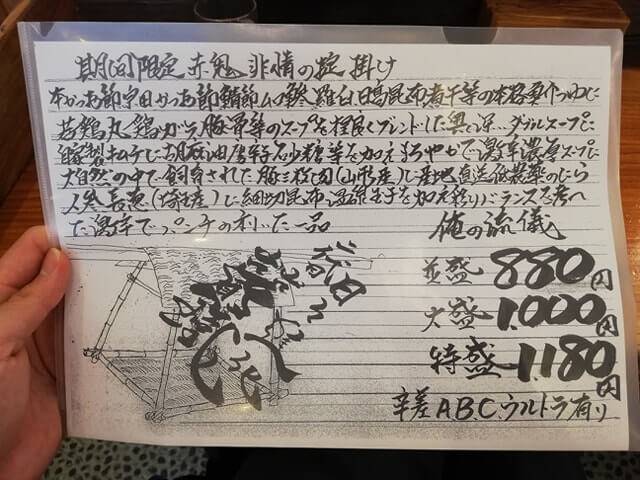 期間限定 赤鬼 非情の掟 掛け
本かつお節宗田かつお節鯖節ムロ鰺 羅臼 日高昆布煮干等の本格要作つゆに
若鶏丸 鶏がら 豚骨等のスープを程良くブレンドした奥深いダブルスープに
自家製ラー油に胡麻油 唐辛子 砂糖等を加えまろやかで激辛濃厚スープに
大自然の中で飼育された豚三枚肉(山形産)に産地直送低農薬のにら
人参 長葱(埼玉産)に細切昆布 温泉玉子を加え彩りバランスを考へ
た激辛でパンチの利いた一品
俺の流儀
並盛 880円
大盛 1.000円
特盛 1.180円
辛差 ABC.ウルトラ有り